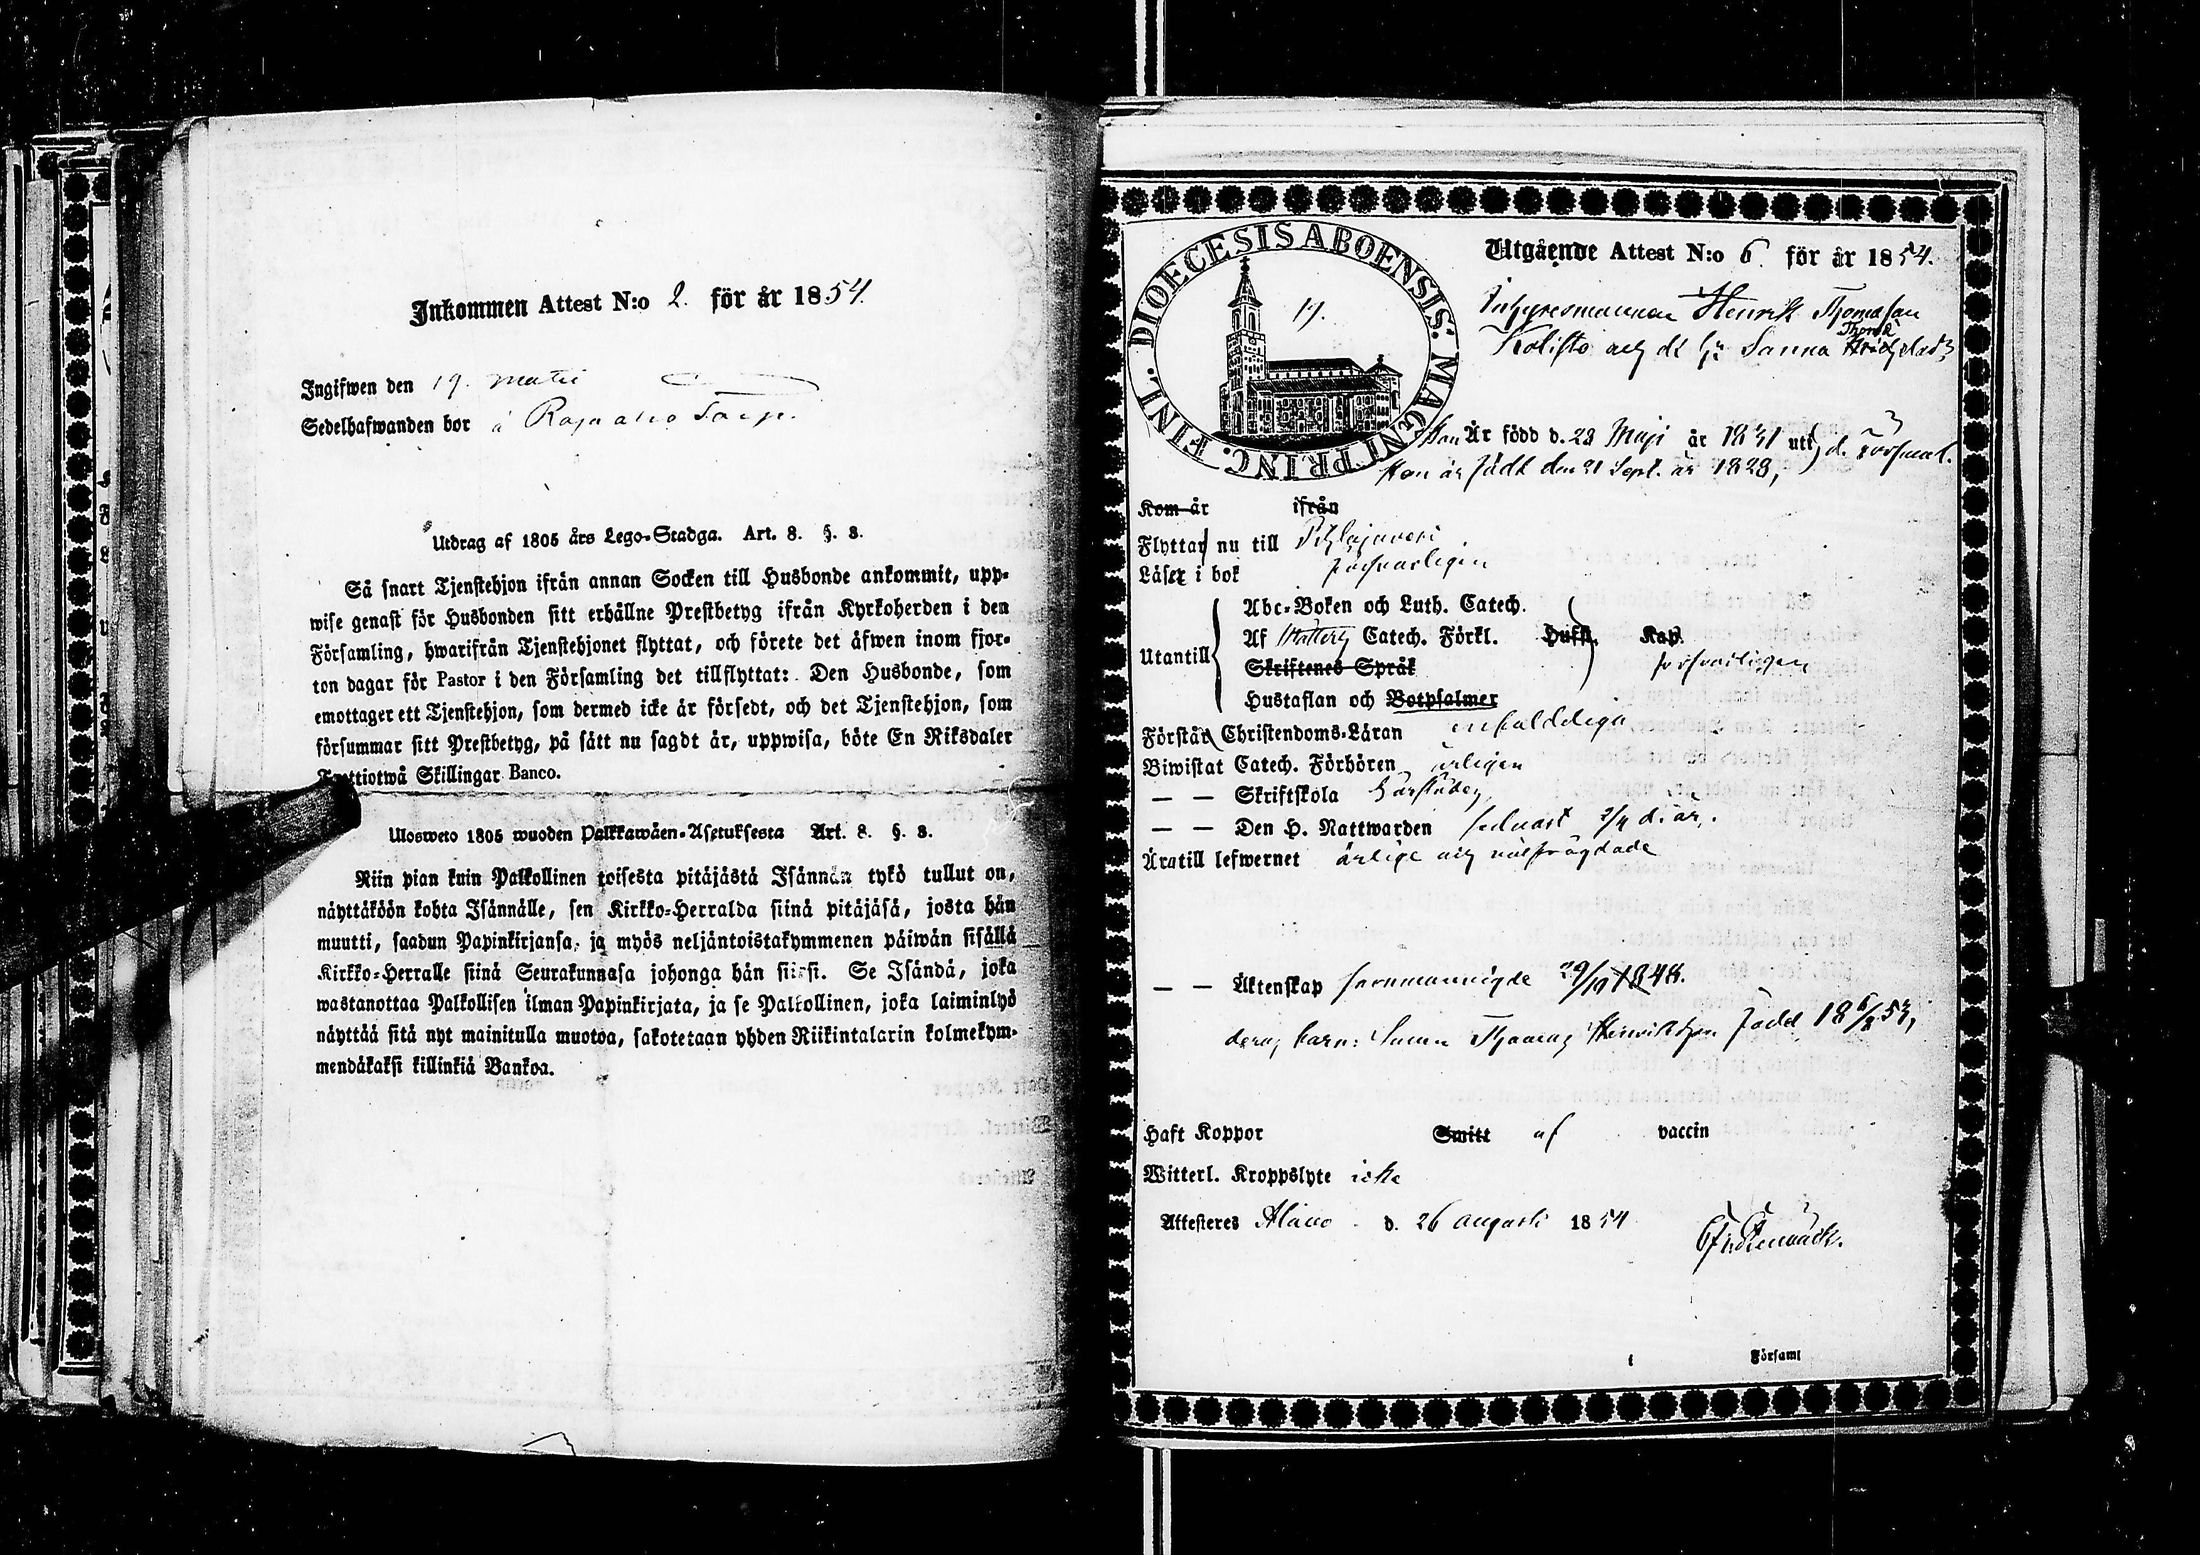 Inkommen Attest N:o 2. för år 1854.
Ingifwen den 19. Matii
Sedelhafwanden bor å Rajnaho Torp.
Utdrag af 1805 års Lego-Stadga. Art. 8. §. 3.
Så snart Tjenstehjon ifrån annan Socken till Husbonde ankommit, upp-
wise genast för Husbonden sitt erhållne Prestbetyg ifrån Kyrkoherden i den
Församling, hwarifrån Tjenstehjonet flyttat, och förete det äfwen inom fjor-
ton dagar för Pastor i den Församling det tillflyttat: Den Husbonde, som
emottager ett Tjenstehjon, som dermed icke är försedt, och det Tjenstehjon, som
försummar sitt Prestbetyg, på sätt nu sagdt är, uppwisa, böte En Riksdaler
Trettiotwå Skillingar Banco.
Ulosweto 1805 wuoden Palkkawäen-Asetuksesta Art. 8. §. 3.
Niin pian kuin Palkollinen toisesta pitäjästä Isännän tykö tullut on,
näyttäköön kohta Isännälle, sen Kirkko-Herralda siinä pitäjäsä, josta hän
muutti, saadun Papinkirjansa, ja myös neljäntoistakymmenen päiwän sisällä
Kirkko-Herralle siinä Seurakunnasa johonga hän siirsi. Se Isändä, joka
wastanottaa Palkollisen ilman Papinkirjata, ja se Palkollinen, joka laiminlyö
näyttää sitä nyt mainitulla muotoa, sakotetaan yhden Riikintalarin kolmekym-
mendäkaksi killinkiä Bankoa.
DIOECESIS ABOENSIS. MAGNI PRINC. FINL.
19.
Utgående Attest N:o 6 för år 1854.
Inhyresmannen Henrik Thomasson
Thomas
Kolisto och dess h. Sanna
Han Är född d. 28 Maji år 1831 uti d. Församl.
Hon är född den 21 Sept. år 1828,
Kom år ifrån
Flyttar nu till Pihlajavesi
Läser i bok försvarligen
Abc-Boken och Luth. Catech.
Utantill Af Catech. Förkl. Hufst. Kap.
Skriftenes Språk försvarligen
Hustaflan och Botpsalmer
Förstår Christendoms-Läran enfaldeliga
Biwistat Catech. Förhören årligen
— — Skriftskola härstädes
— — Den H. Nattwarden sednast 2/4 d. år.
Äratill lefwernet ärlige och välfrägdade
— — Äktenskap sammanvigde 29/10 1848.
deras barn: Thomas Henriksson född 18 6/8 53,
Haft Koppor Smitt af vaccin
Witterl. Kroppslyte icke
Attesteres Alavo d. 26 Augusti 1854
Församl